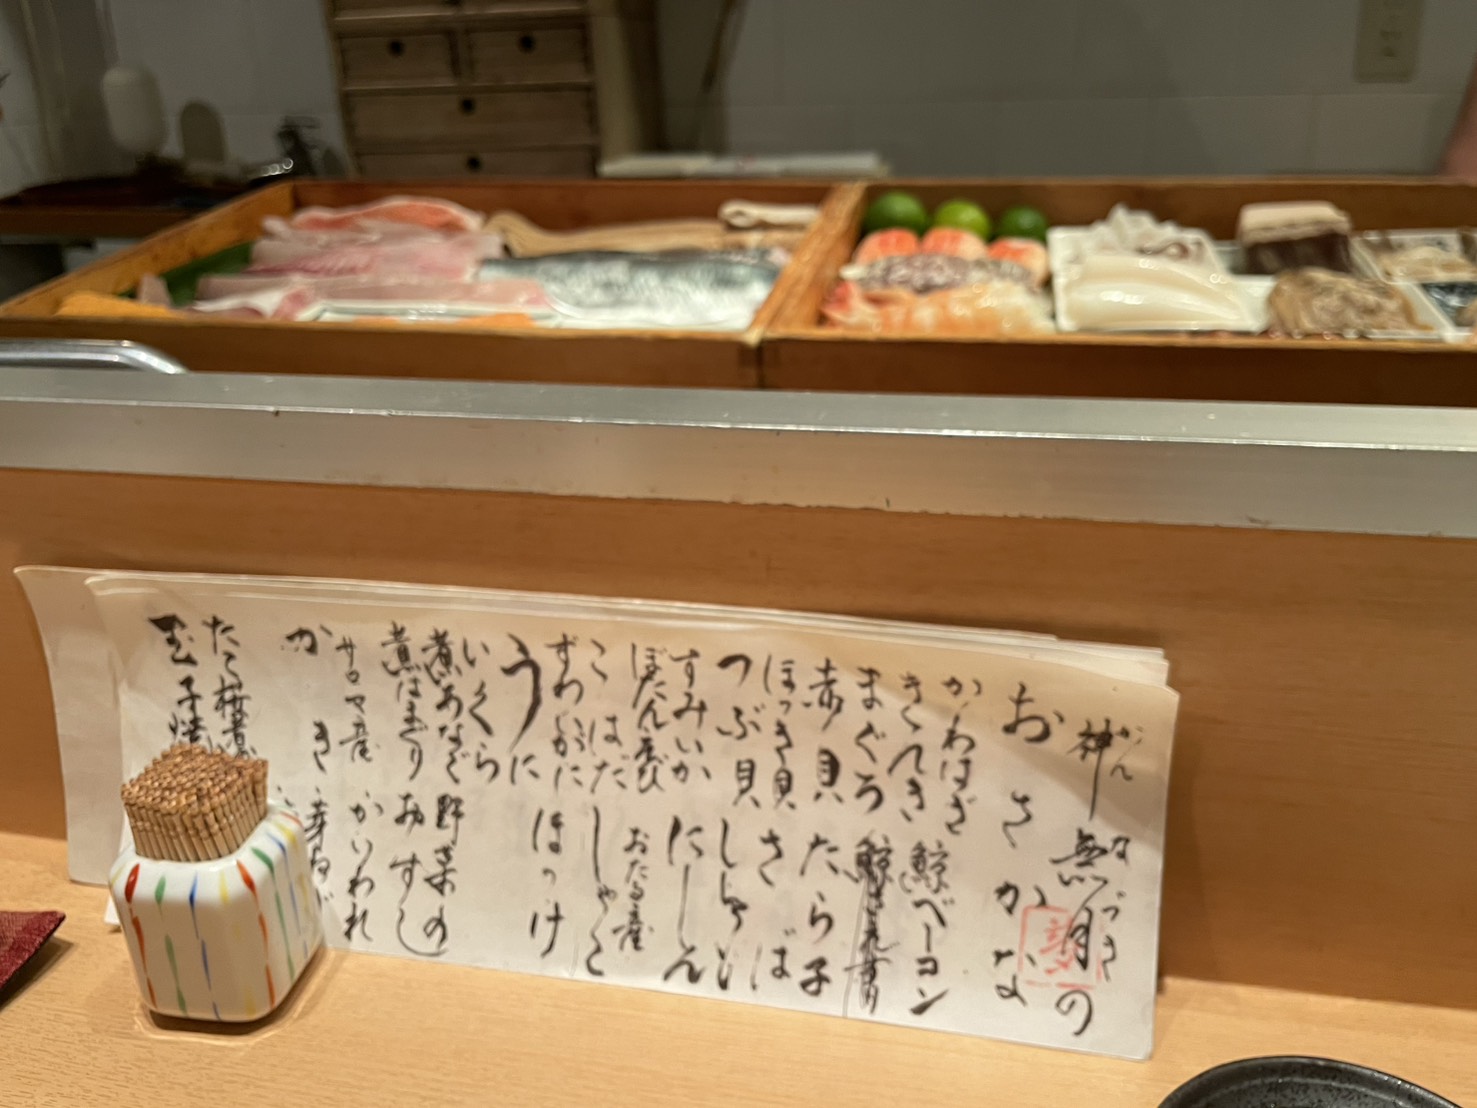 神無月の
かんなづき
おさかな
かわはぎ 鯨ベーコン
きんき
まぐろ
赤貝 たら子
ほっき貝 さば
つぶ貝 ししゃも
すみいか にしん
ぼたん海老 おたる産
こはだ しゃこ
ずわいがに ほっけ
うに
いくら 野菜の
煮あなご おすし
煮はまぐり
サロマ産 かいわれ
かき 芽ねぎ
たこ桜煮
玉子焼